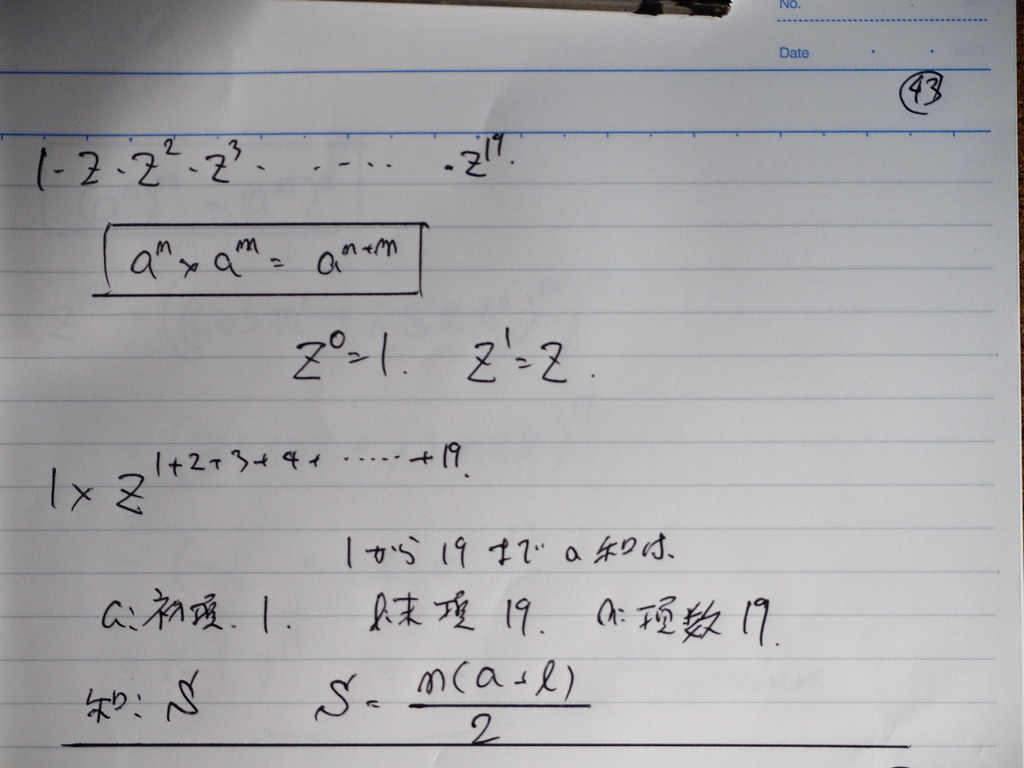 No.
Date
43
1・z・z²・z³・ ・・・・・ ・z¹⁹.
aⁿ × aᵐ = aⁿ⁺ᵐ
z⁰ = 1. z¹ = z.
1 × z^1+2+3+4+ ・・・・・ +19.
1から19までの和は、
a:初項. 1. l:末項 19. n:項数 19.
和:S S = n(a+l)/2